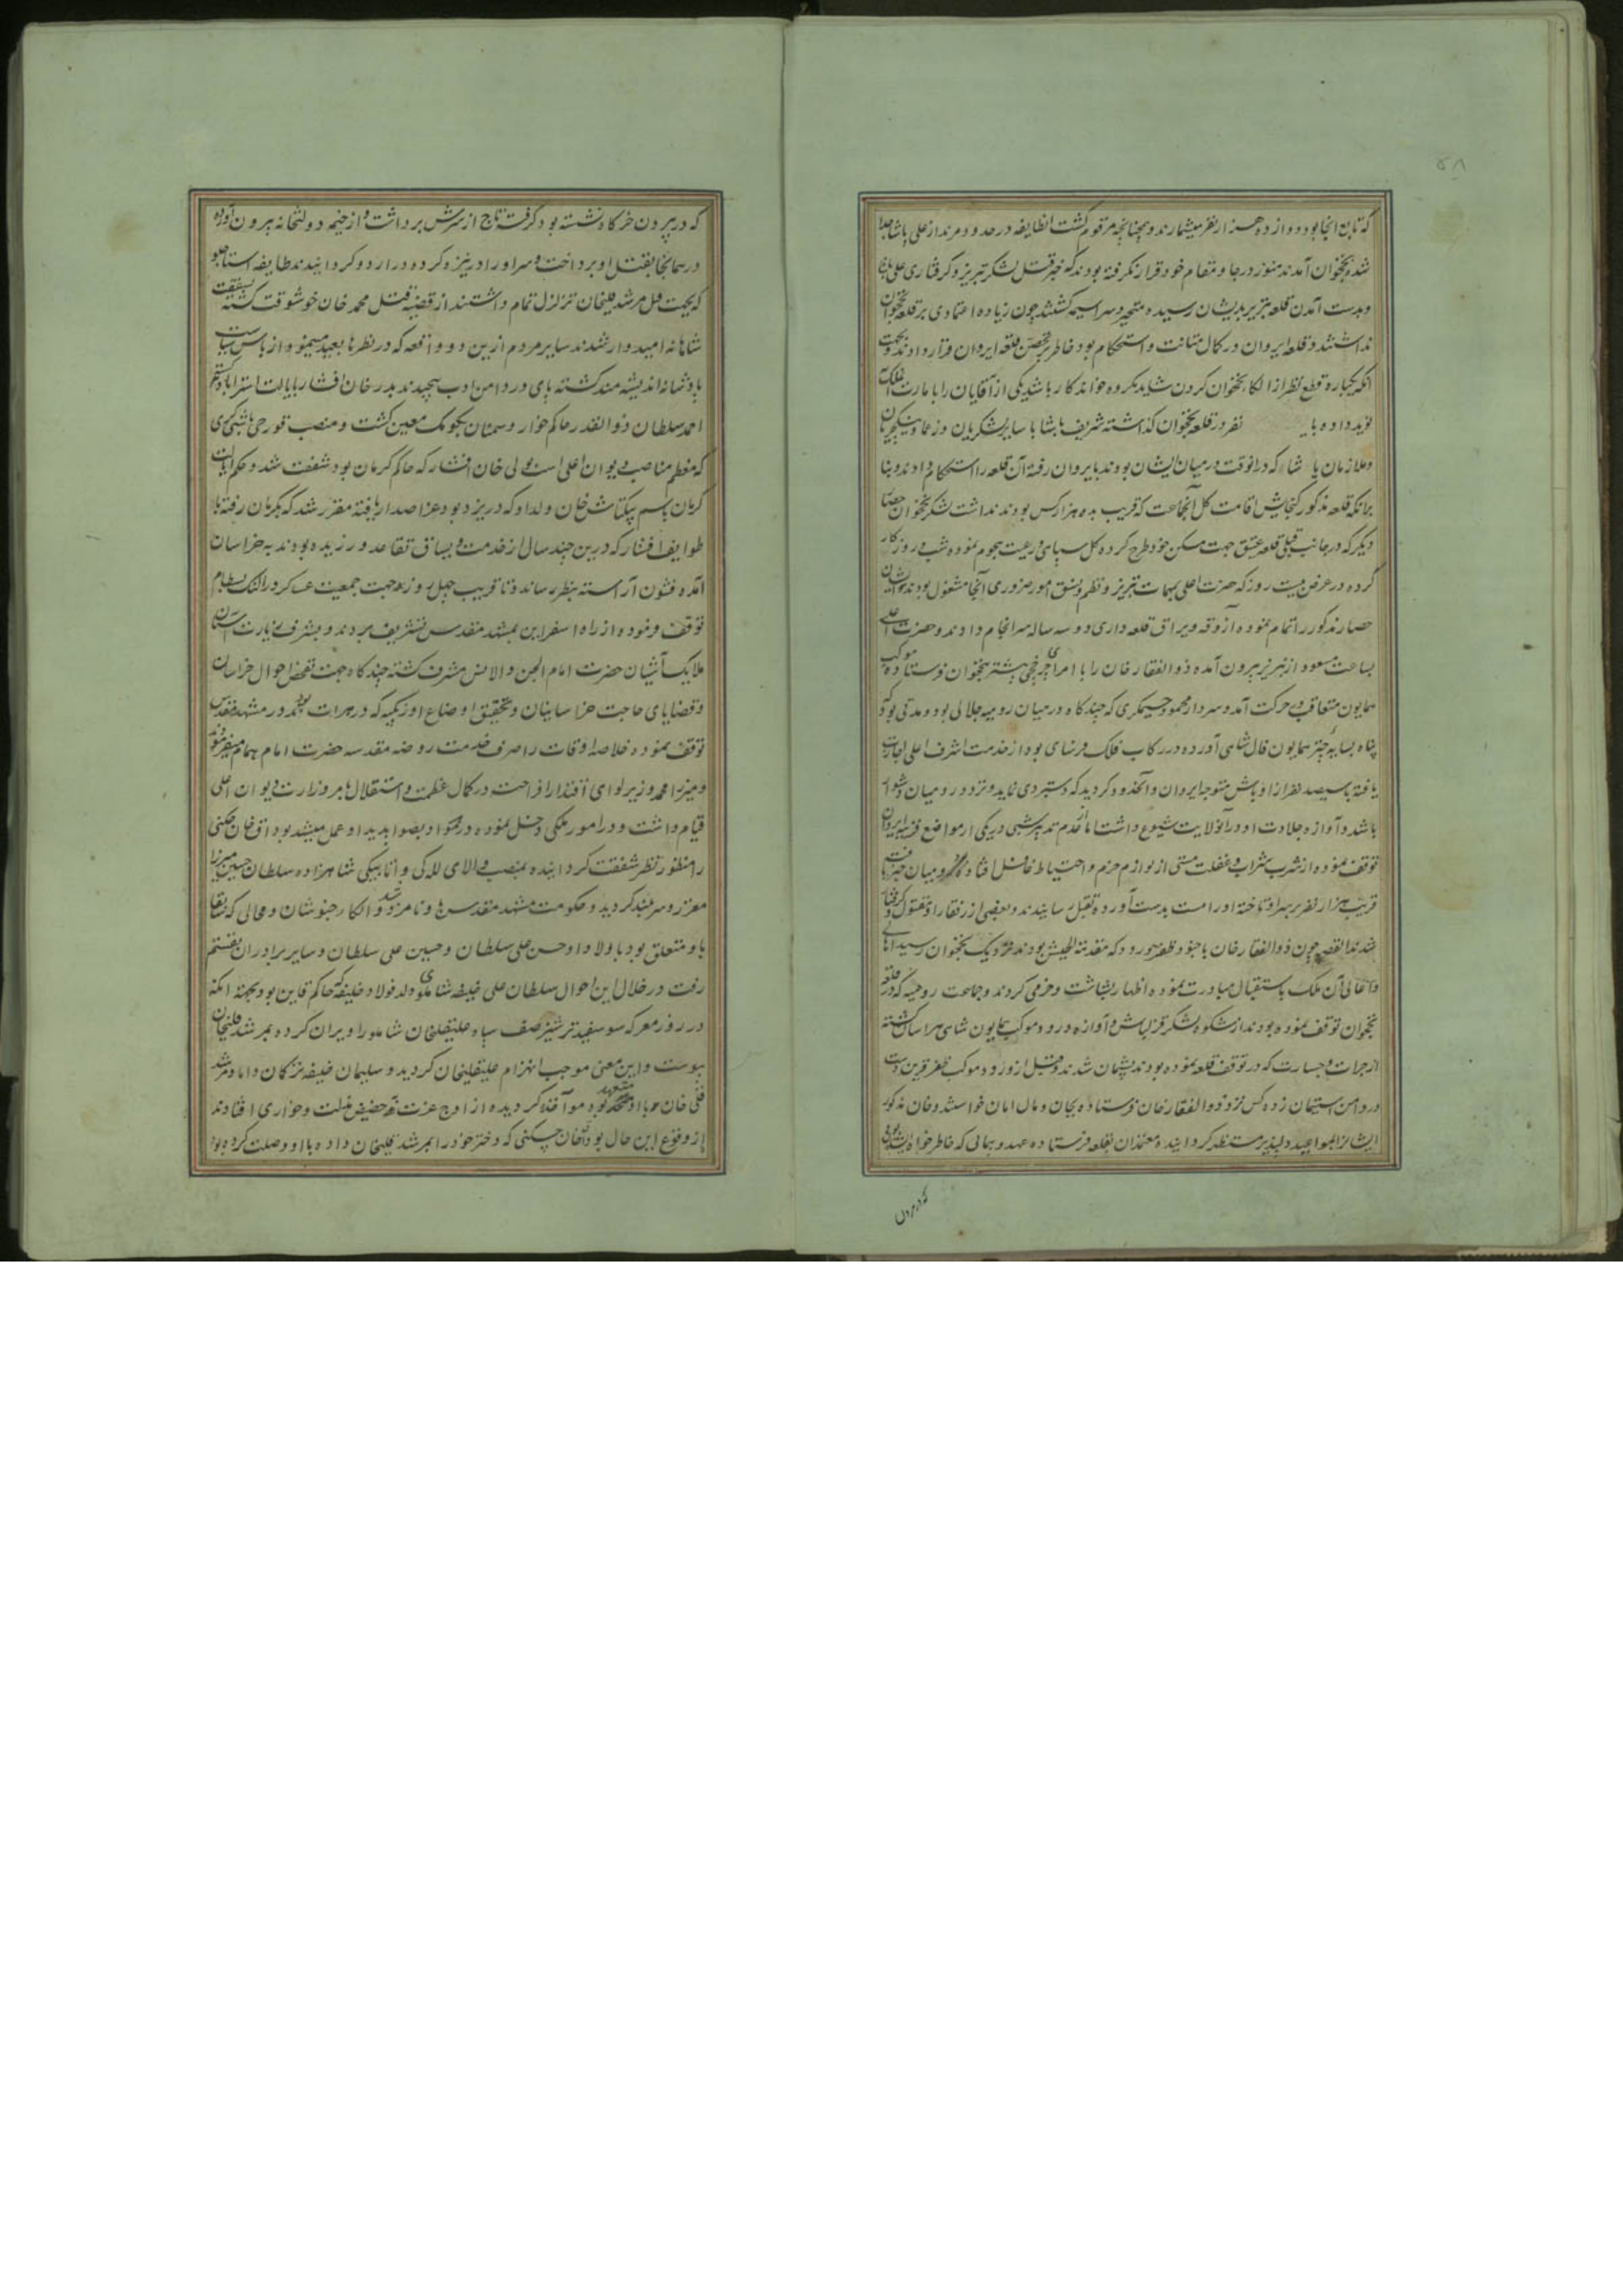 ۵۸
که تابع آنجا بود دوازده هزار نفر میشمارند و چنانچه مرقوم گشت انطایفه در حدود مرند از علی پاشا جدا
شده بنخجوان آمدند هنوز در جا و مقام خود قرار نگرفته بودند که خبر قتل لشکر تبریز و گرفتاری علی پاشا
و بدست آمدن قلعه تبریز بدیشان رسیده متحیر و سراسیمه گشتند چون زیاده اعتمادی بر قلعه نخجوان
نداشتند و قلعه ایروان در کمال متانت و استحکام بود خاطر بتحصن قلعه ایروان قرار دادند و بجهت
آنکه یکباره قطع نظر از الکاء نخجوان کردن شاید مکروه خواندکار باشد یکی از آقایان را بامارت آن ملک
نوید داده با نفر در قلعه نخجوان گذاشته شریف پاشا با سایر لشکریان و زعما و ینکچریان
و ملازمان پاشا که درانوقت در میان ایشان بودند بایروان رفته آن قلعه را استحکام دادند و بنا
برانکه قلعه مذکور گنجایش اقامت کل آنجماعت که قریب بده هزار کس بودند نداشت لشکر نخجوان حصار
دیگر که در جانب قبلی قلعه عتیق جهت مسکن خود طرح کرده کل سپاهی و رعیت هجوم نموده شب و روز کار
کرده در عرض بیست روز که حضرت اعلی بمهمات تبریز و نظم و نسق امور ضروری آنجا مشغول بودند
حصار مذکور را تمام نموده آزوقه و یراق قلعه داری دو سه ساله سرانجام دادند و حضرت اعلی
بساعت مسعود از تبریز بیرون آمده ذوالفقار خان را با امرای چرخچی پیشتر بنخجوان فرستاده موکب
همایون متعاقب در حرکت آمد و سردار محمود چیمکری که چند گاه در میان رومیه جلالی بود و مدتی بود که
پناه بسایه چتر همایون فال شاهی آورده در رکاب فلک فرسای بود از خدمت اشرف اعلی اجازت
یافته با سیصد نفر از اوباش متوجه ایروان و آنحدود گردید که دستبردی نماید و تردد رومیان دشوار
باشد و آوازه جلادت او درآنولایت شیوع داشت اما از عدم تدبیر شبی در یکی از مواضع قریه ایروان
توقف نموده از شرب شراب و غفلت مستی از لوازم حزم و احتیاط غافل افتاد و رومیان خبر یافته
قریب هزار نفر بر سر او تاخته او را مست بدست آورده بقتل رسانیدند و بعضی از رفقا را مقتول و گرفتار
شدند القصه چون ذوالفقار خان با جنود ظفر ورود که مقدمة الجیش بودند نزدیک نخجوان رسید اهالی
و اعالی آن ملک باستقبال مبادرت نموده اظهار بشاشت و خرمی کردند و جماعت رومیه که در قلعه
نخجوان توقف نموده بودند از شکوه لشکر قزلباش و آوازه ورود موکب همایون شاهی هراسان گشته
از جرات و جسارت که در توقف قلعه نموده بودند پشیمان شدند و قبل از ورود موکب ظفر قرین دست
در دامن استیمان زده کس نزد ذوالفقار خان فرستاده بجان و مال امان خواستند و خان مذکور
ایشانرا بمواعید دلپذیر مستظهر گردانیده معتمدان بقلعه فرستاده عهد و پیمانی که خاطر خواه ایشان بود
که در بیرون
که در بیرون خرگاه نشسته بود گرفته تاج از سرش برداشت و از خیمه دولتخانه بیرون آورده
در همانجا بقتل او پرداخت و سر او را در نیزه کرده در اردو گردانیدند طایفه استاجلو
که بجهت قتل مرشد قلیخان تزلزل تمام داشتند از قضیه قتل محمد خان خوشوقت گشته بشفقت
شاهانه امیدوار شدند سایر مردم از این دو واقعه که در نظرها بعید مینمود از باس سیاست
پادشاهانه اندیشه مند گشته پای در دامن ادب پیچیدند بدر خان افشار بایالت استراباد و رستم
احمد سلطان ذوالقدر حاکم خوار و سمنان بکومک معین گشت و منصب قورچی باشیگری
که معظم مناصب دیوان اعلی است بولی خان افشار که حاکم کرمان بود شفقت شد و حکم ایالت
کرمان باسم بیکتاش خان ولد او که در یزد بود عز اصدار یافته مقرر شد که بکرمان رفته با
طوایف افشار که درین چند سال از خدمت و یساق تقاعد ورزیده بودند به خراسان
آمده قشون آراسته بنظر رساند و تا قریب چهل روز جهت جمعیت عساکر در النک بسطام
توقف فرموده از راه اسفراین بمشهد مقدس تشریف بردند و بشرف زیارت آستان
ملایک آشیان حضرت امام الجن والانس مشرف گشته چند گاه جهت تفحص احوال خراسان
و قضایای حاجت خراسانیان و تحقیق اوضاع اوزبکیه که در هرات بودند در مشهد مقدس
توقف نموده خلاصه اوقات را صرف خدمت روضه مقدسه حضرت امام همام میفرمود
و میرزا محمد وزیر لوای اقتدار افراخته در کمال عظمت و استقلال بامر وزارت دیوان اعلی
قیام داشت و در امور ملکی دخل نموده در مواد بصوابدید او عمل میشد بوداق خان چگنی
را منظور نظر شفقت گردانیده بمنصب والای للگی و اتابیکی شاهزاده سلطان حسن میرزا
معزز و سربلند گردید و حکومت مشهد مقدس باو نامزد شد و الکاء خبوشان و محالی که سابقا
باو متعلق بود باولاد او حسن علی سلطان و حسین علی سلطان و سایر برادران منقسم
رفت در خلال این احوال سلطان علی خلیفه شاملو ولد فولاد خلیفه که حاکم قاین بود بجهة آنکه
در روز معرکه سوسفید ترشیز صف سپاه علیقلیخان شاملو را ویران کرده بمرشد قلیخان
پیوست و این معنی موجب انهزام علیقلیخان گردید و سلیمان خلیفه ترکمان داماد مرشد
قلی خان که با او متعهد بود مواخذه گردیده از اوج عزت به حضیض مذلت و خواری افتادند
از وقوع این حال بوداق خان چگنی که دختر خود را بمرشد قلیخان داده با او وصلت کرده بود